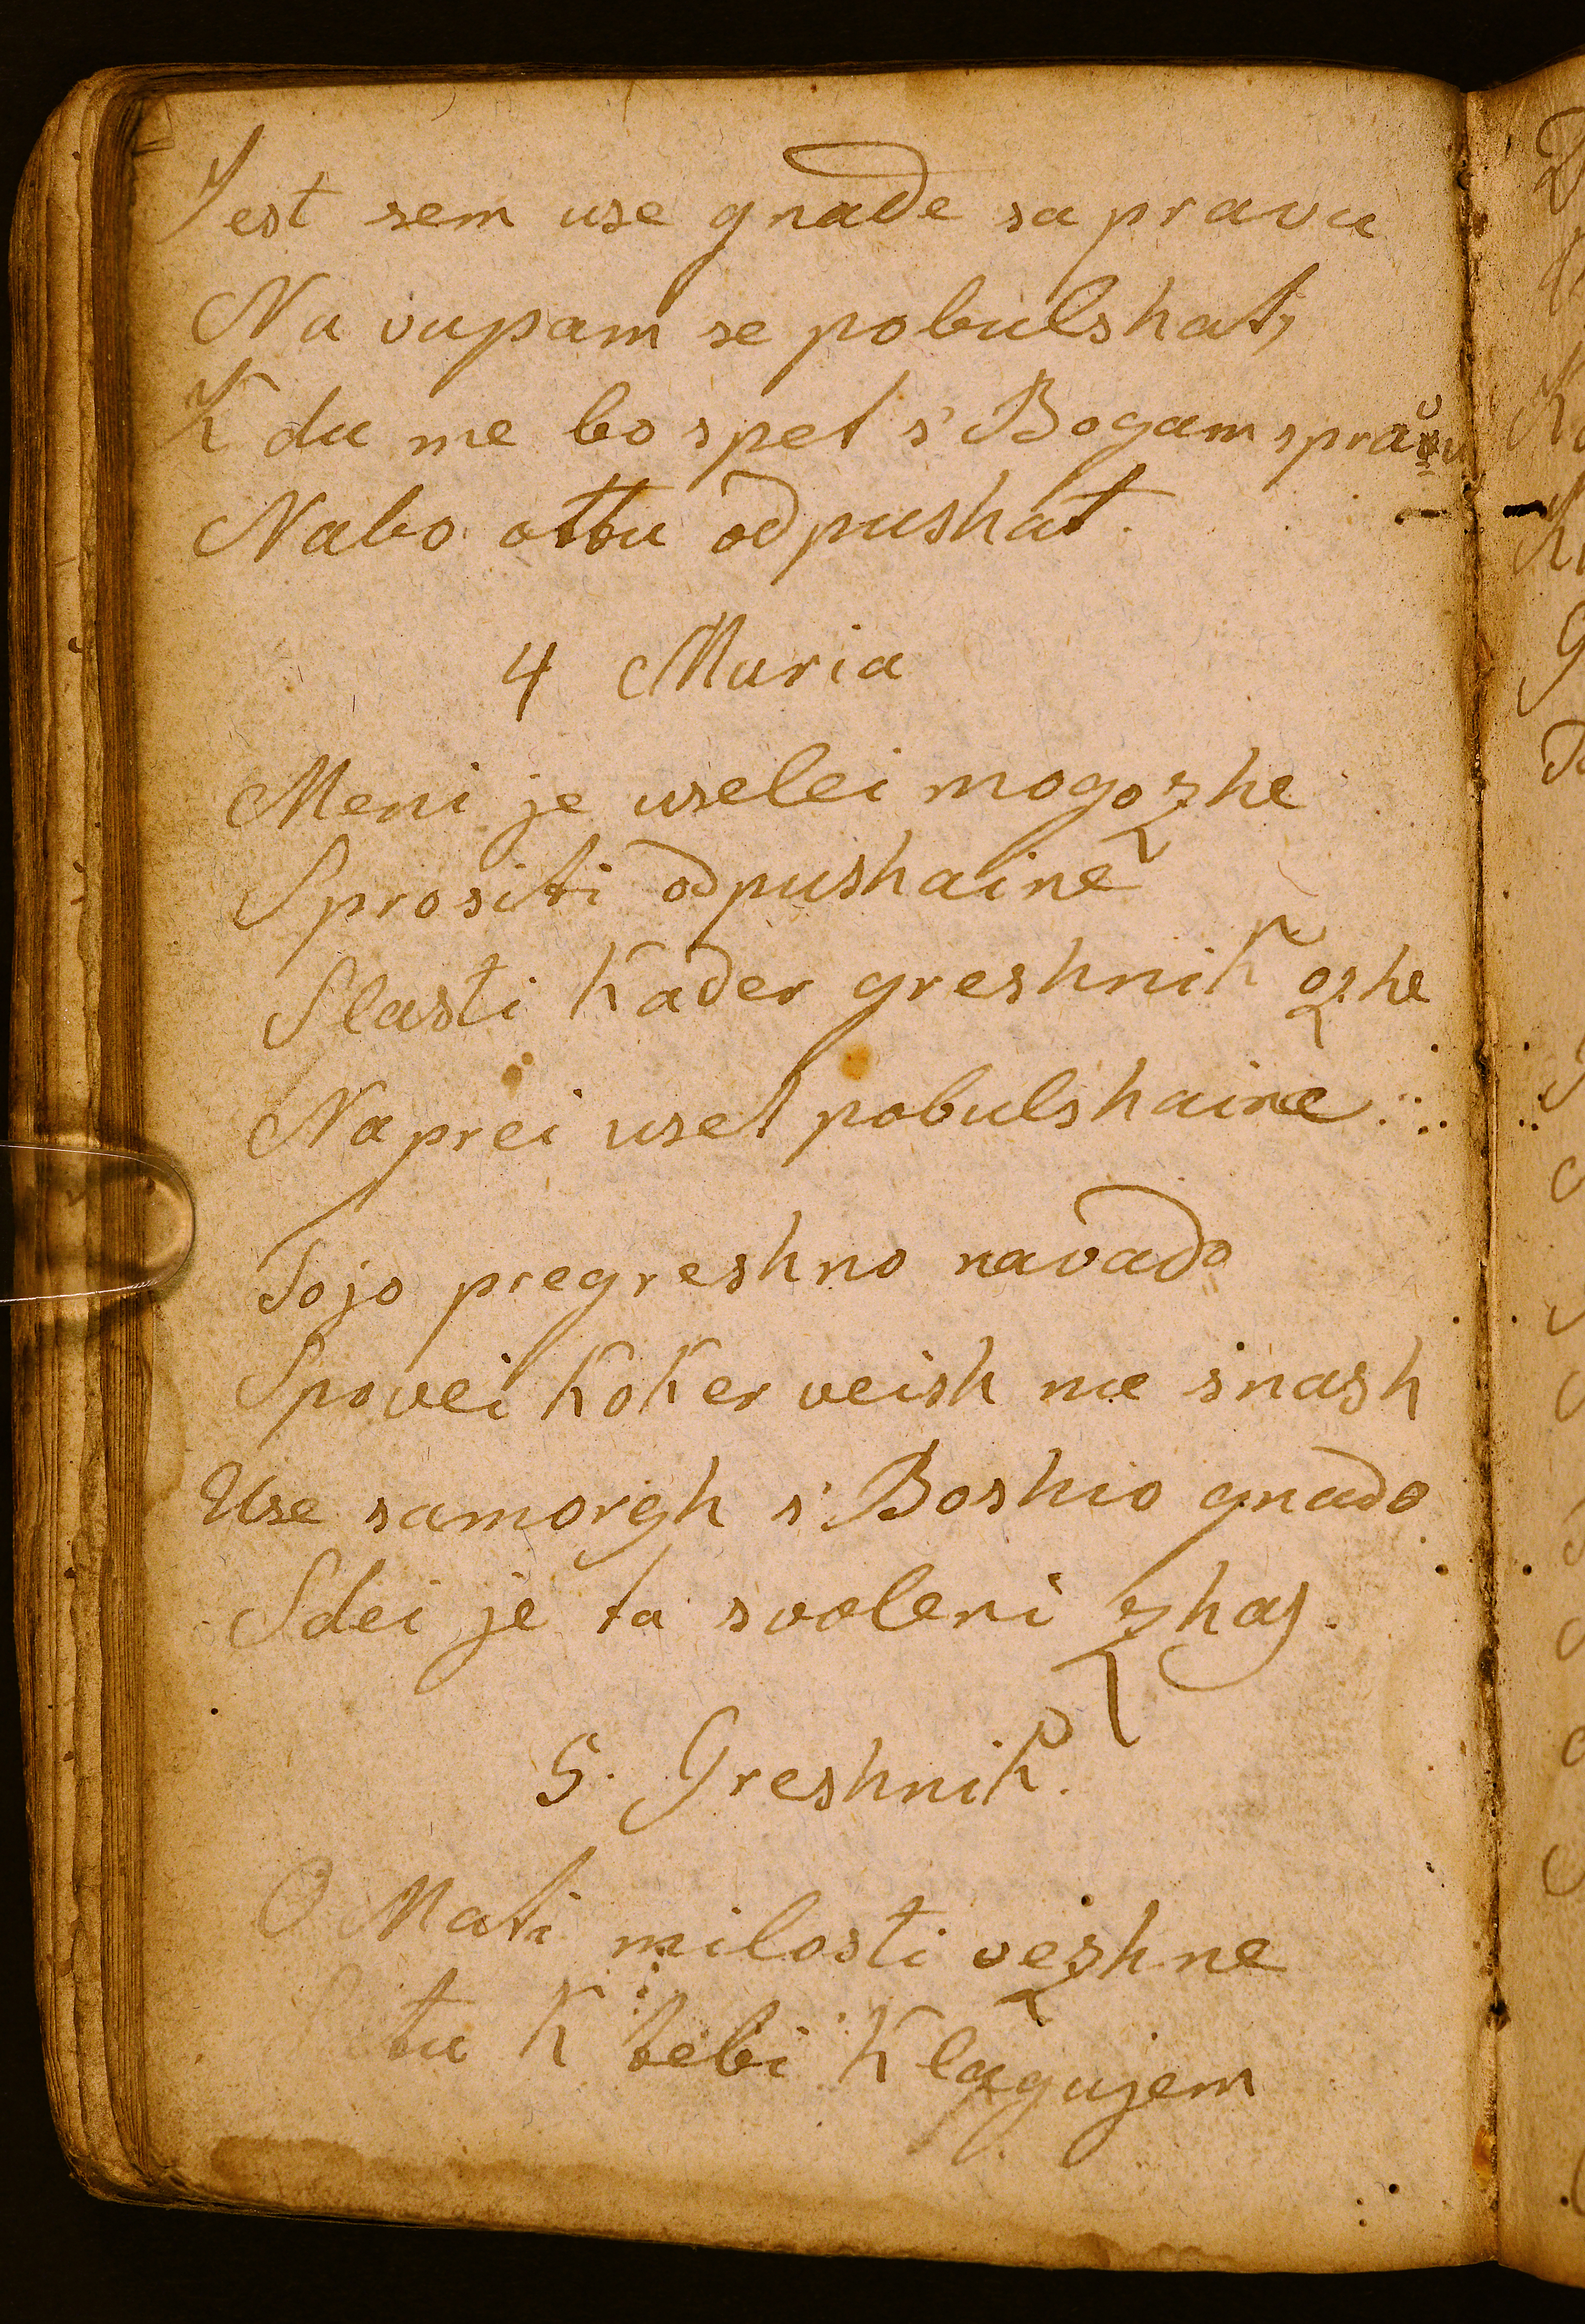 Jest sem use gnade sapravu
Na vupam se pobulshat,
K du me bo spet s' Bogam spravu
Nabo ottu odpushat.
4 Maria
Meni je uselei mogozhe
Sprositi odpushaine
Slasti Kader greshnik ozhe
Naprei uset pobulshaine
Tojo pregreshno navado
Spovei Koker veish me snash
Use samorgh s' Boshio gnado
Sdei je ta svoleni zhas.
5. Greshnik.
O Mati milosti vezhne
tu K tebi Klagujem